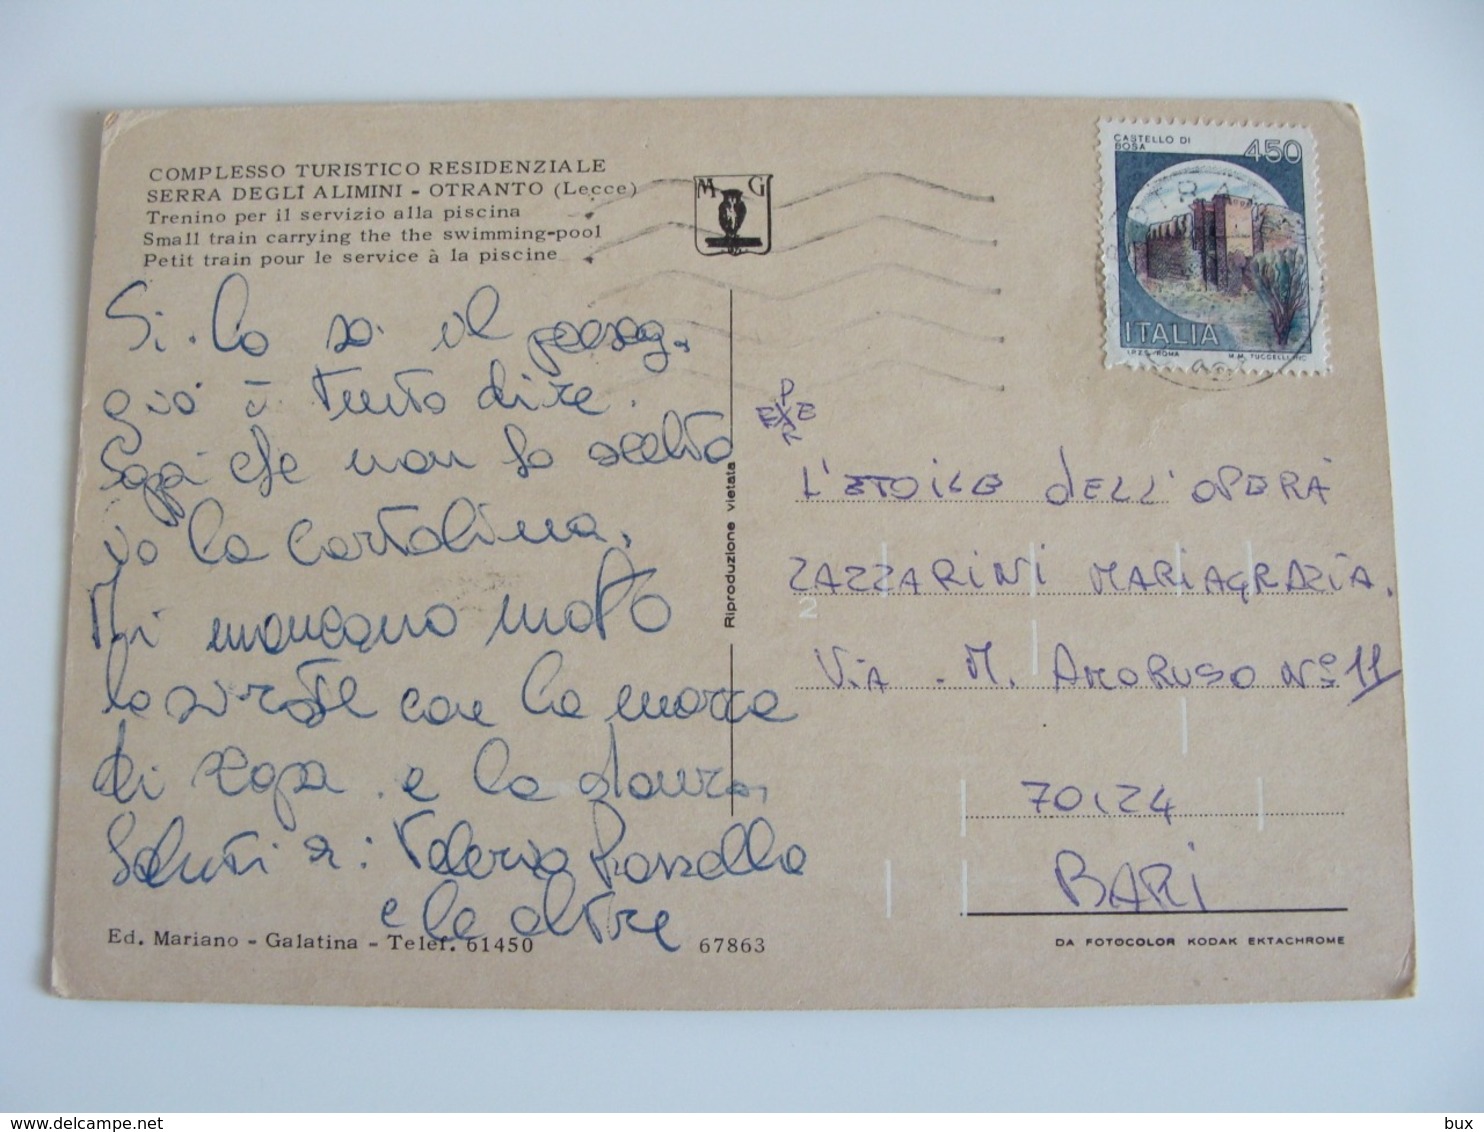 COMPLESSO TURISTICO RESIDENZIALE
SERRA DEGLI ALIMINI - OTRANTO (Lecce)
Trenino per il servizio alla piscina
Small train carrying the the swimming-pool
Petit train pour le service à la piscine
M G
CASTELLO DI
BOSA
450
ITALIA
I.P.Z.S. ROMA M.M. TUCCELLI INC.
Si. lo so il paesag.
gio è tutto dire.
Sappi che non ho scelto
io la cartolina.
Mi mancano molto
le serate con la
di e la Laura,
Saluti Valeria Rossella
e le altre
Riproduzione vietata
PER
PER
L'ETOILE DELL'OPERA
ZAZZARINI MARIAGRAZIA.
2
VIA . M. AMORUSO N° 11
70124
BARI
Ed. Mariano - Galatina - Telef. 61450
67863
DA FOTOCOLOR KODAK EKTACHROME
delcampe.net
bux